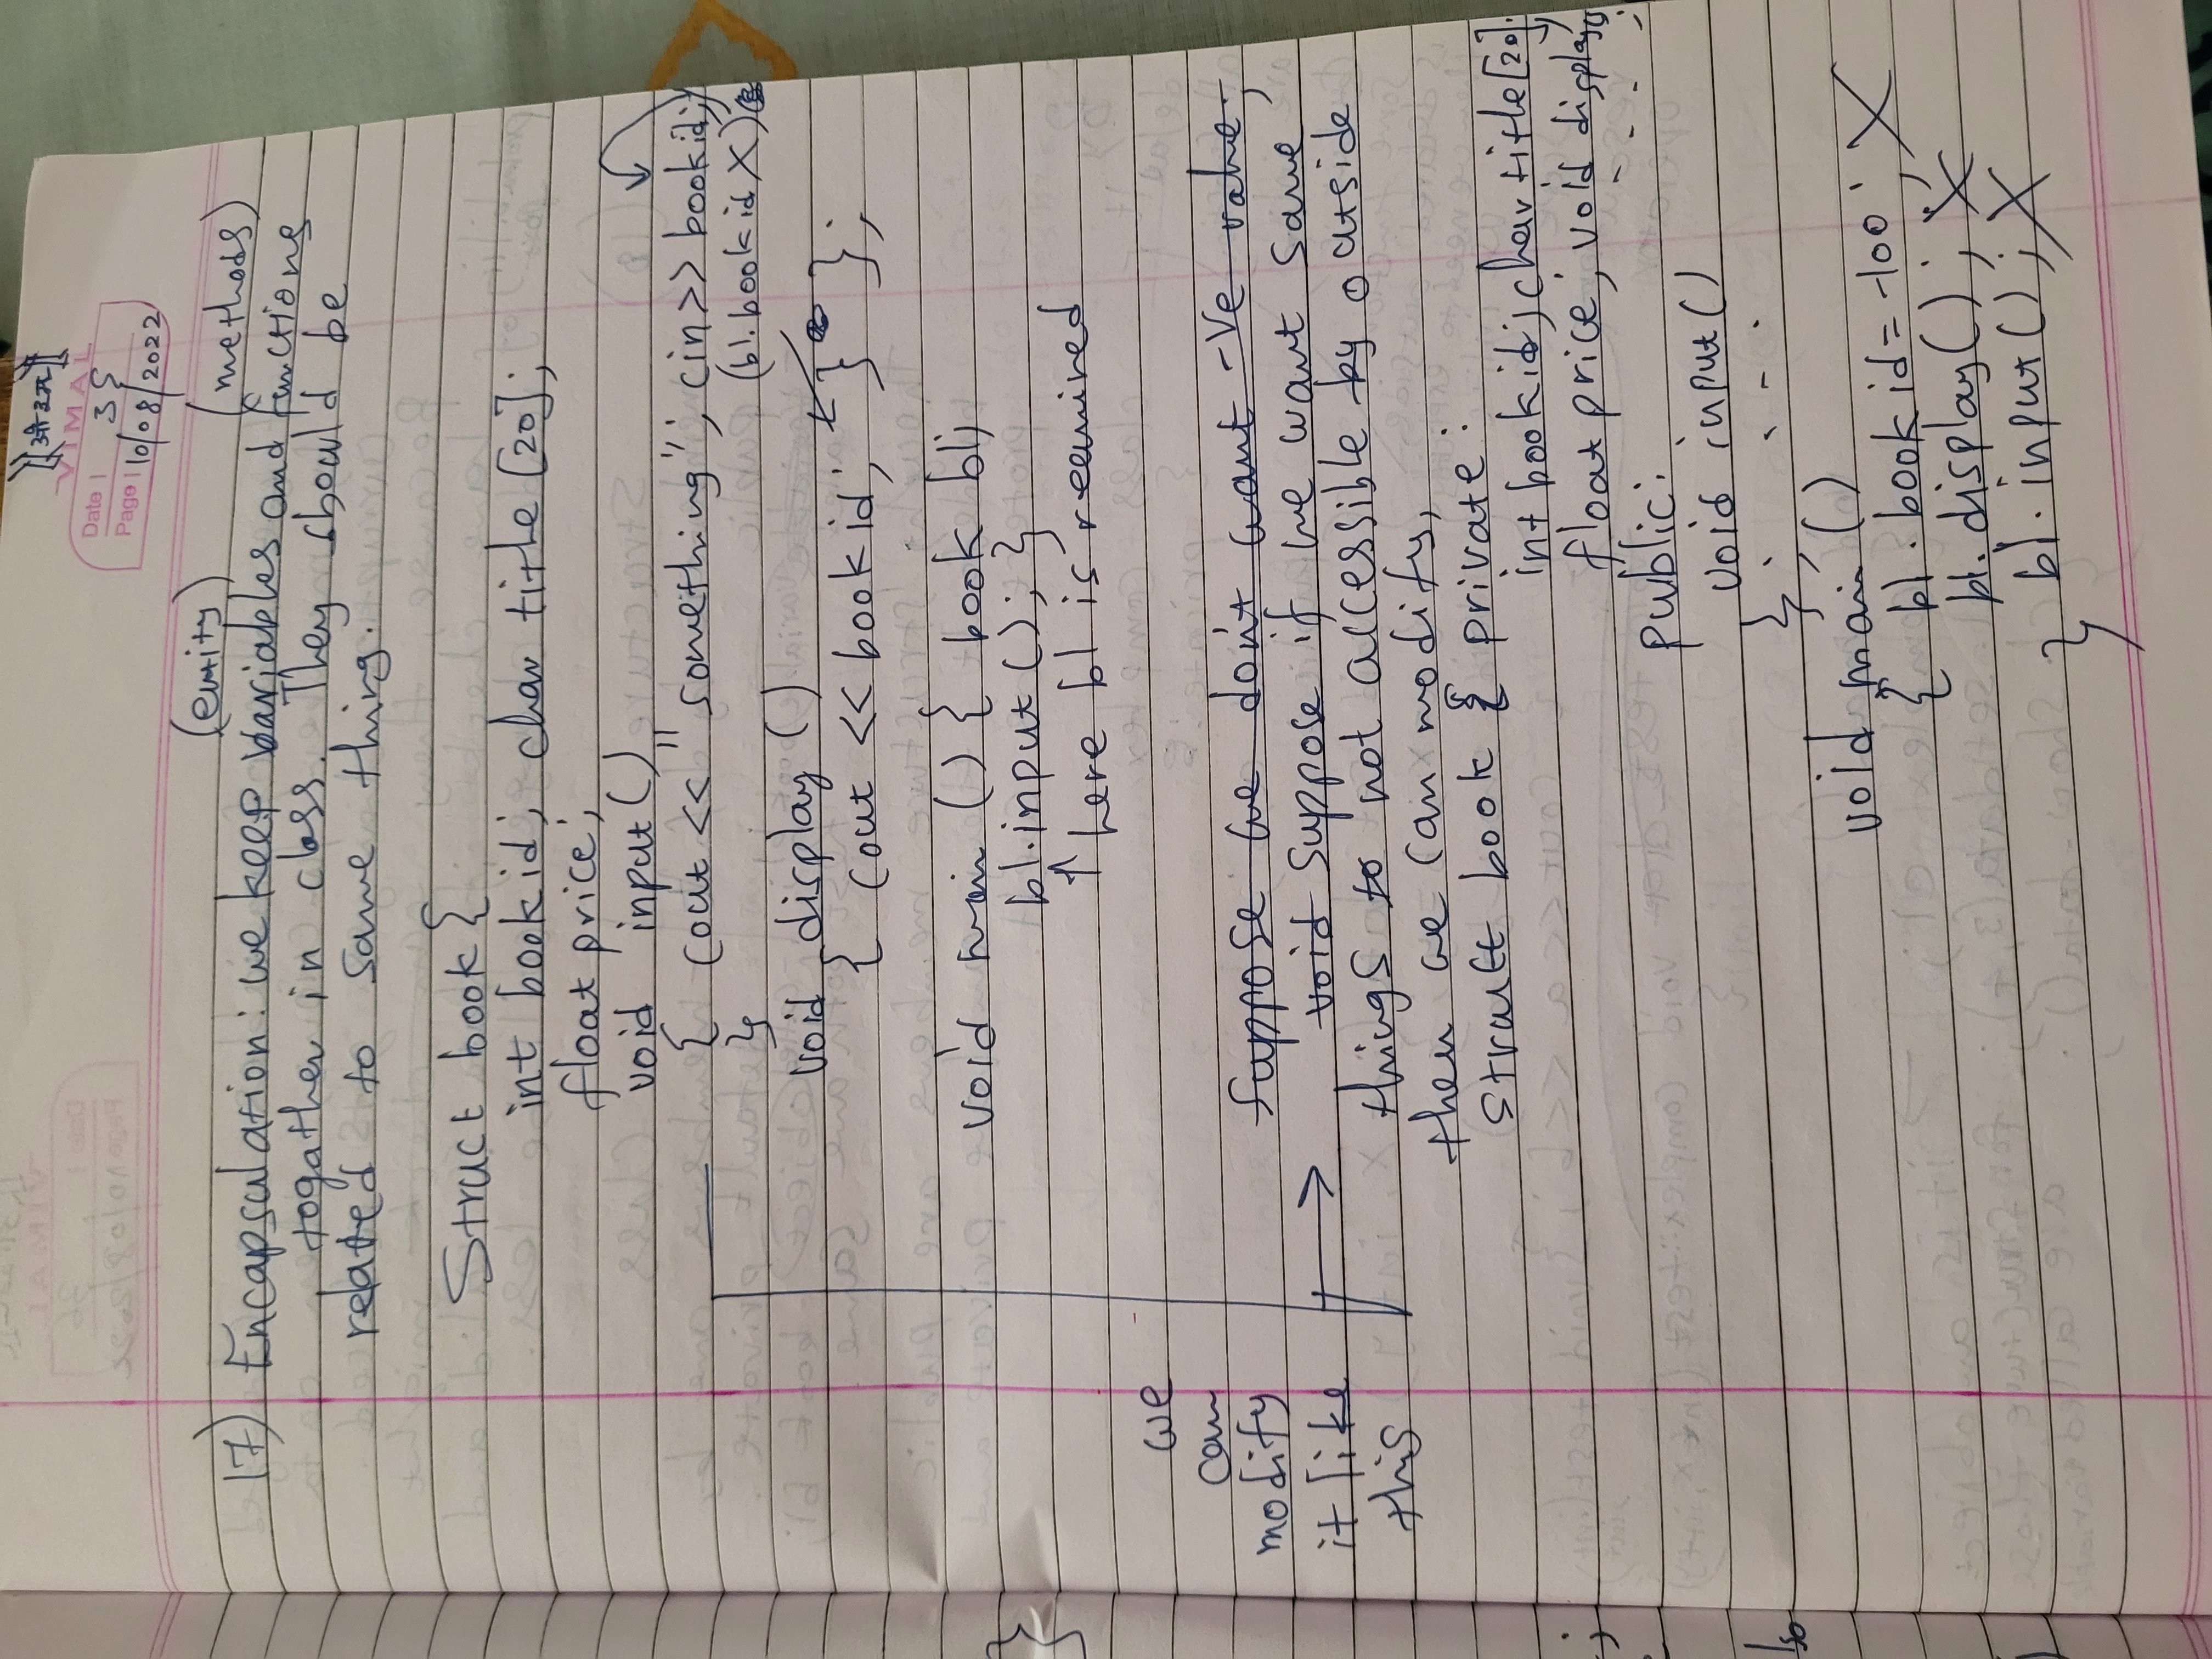 ||ओ३म||
VIMAL
Date | 35
Page | 10/08/2022
(entity) (methods)
17) Encapsulation: we keep variables and functions
togather in class. They should be
related to same thing.
Struct book {
int bookid; char title [20];
float price;
void input()
{ cout << "something"; cin>> bookid;
(b1.bookid X)
}
void display ()
{ cout << bookid; } };
void main () { book b1;
b1.input (); }
↑ here b1 is reequired
we
can
modify
it like
this
Suppose we don't want -ve value;
void suppose if we want some
things to not accessible by outside
then we can modify,
struct book { private:
int bookid; char title[20];
float price; void display()
public:
void input()
};
void main ()
{ b1. bookid = -100; X
b1. display(); X
b1. input(); X
}